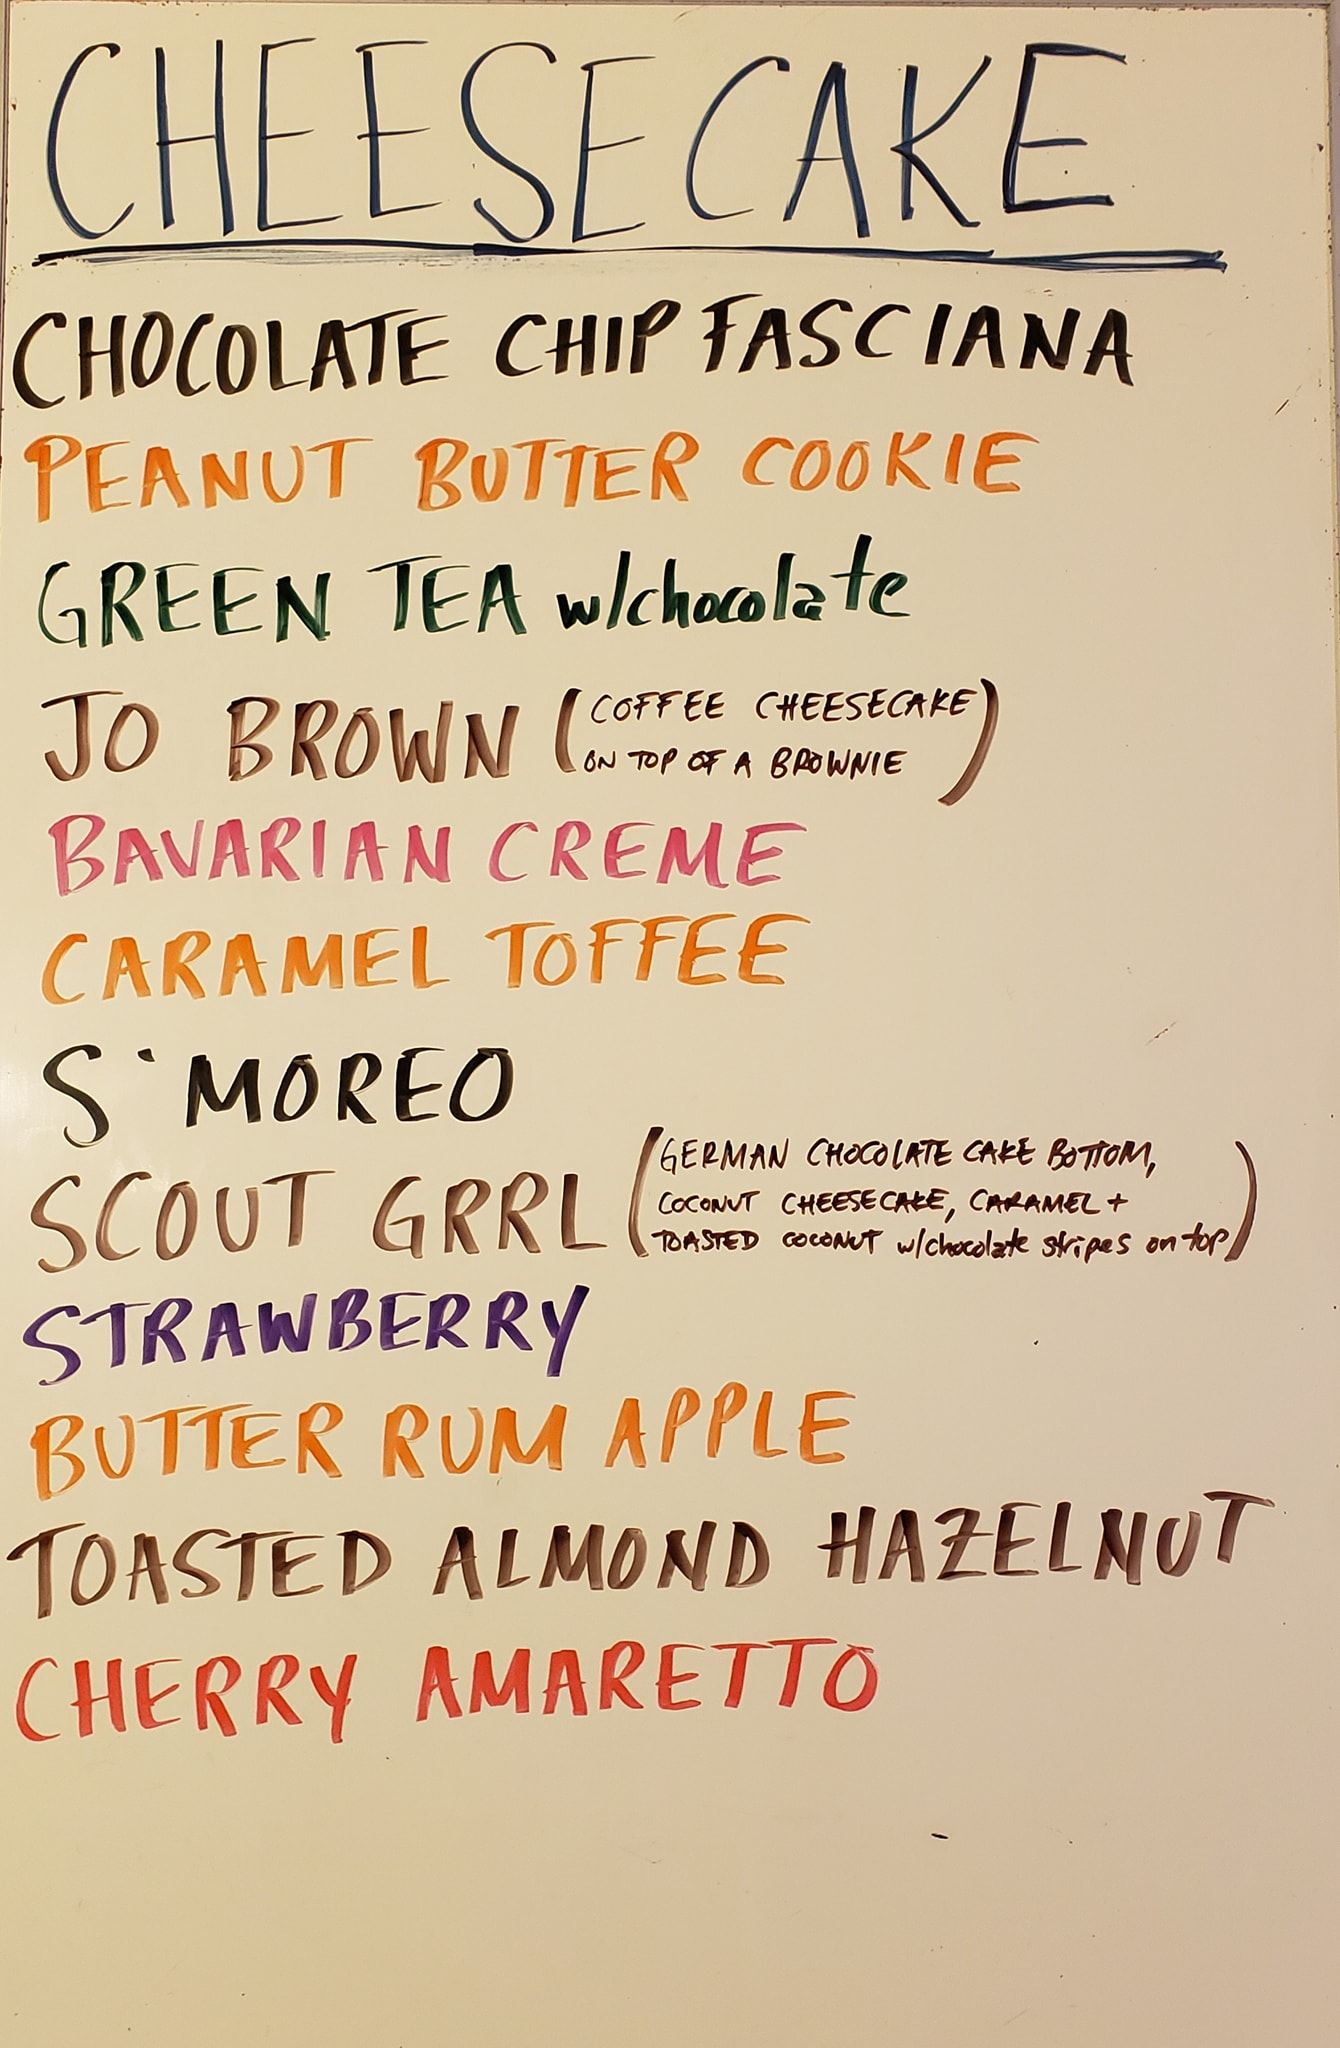 CHEESECAKE
CHOCOLATE CHIP FASCIANA
PEANUT BUTTER COOKIE
GREEN TEA w/chocolate
JO BROWN (COFFEE CHEESECAKE
ON TOP OF A BROWNIE)
BAVARIAN CREME
CARAMEL TOFFEE
S'MOREO
SCOUT GRRL (GERMAN CHOCOLATE CAKE BOTTOM,
COCONUT CHEESECAKE, CARAMEL +
TOASTED COCONUT w/chocolate stripes on top)
STRAWBERRY
BUTTER RUM APPLE
TOASTED ALMOND HAZELNUT
CHERRY AMARETTO